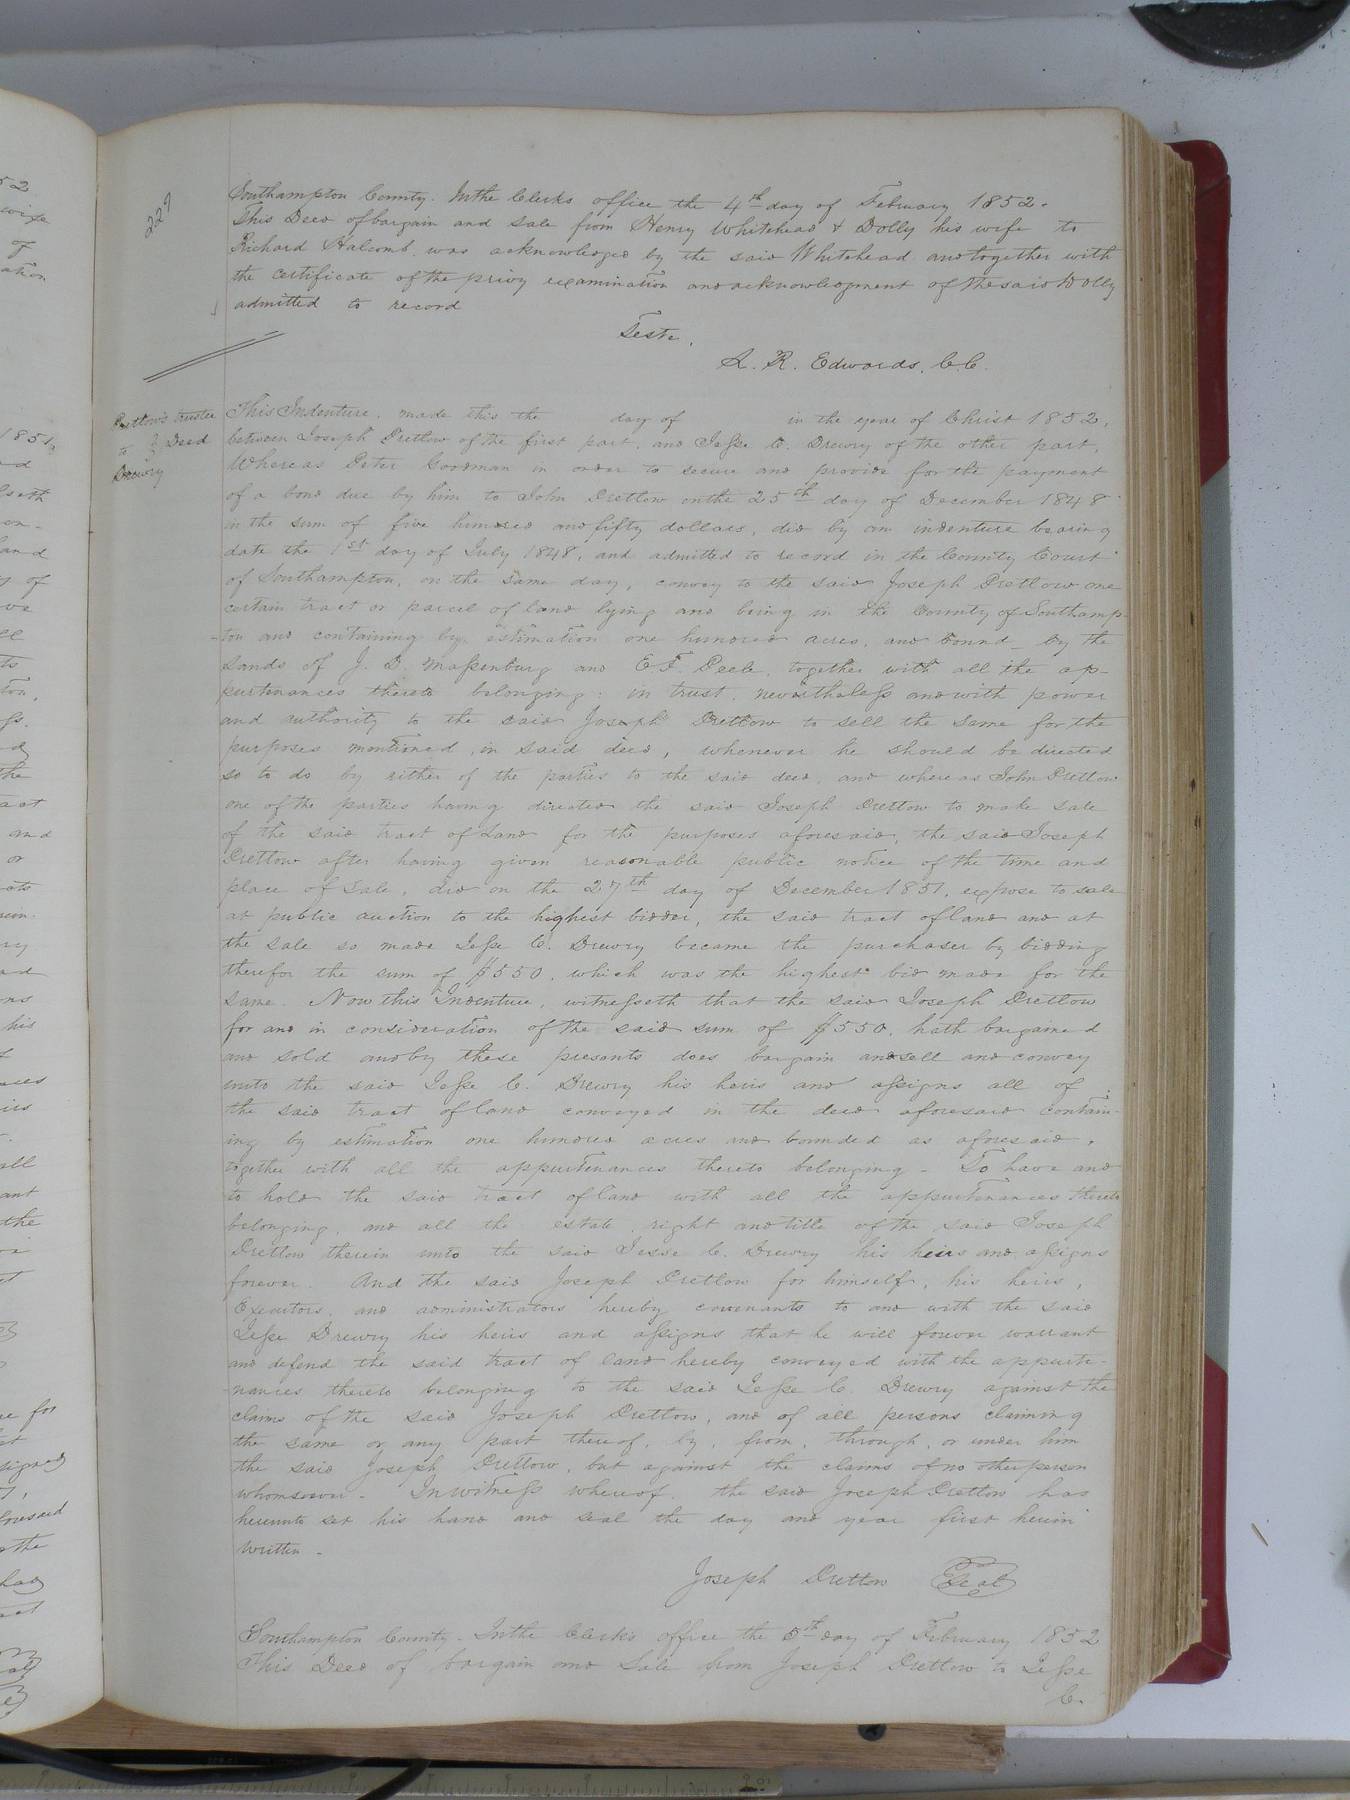 229
Southampton County. In the Clerks office the 4th day of February 1852.
This Deed of bargain and sale from Henry Whitehead & Dolly his wife to
Richard Halcomb was acknowledged by the said Whitehead and together with
the certificate of the privy examination and acknowledgment of the said Dolly
admitted to record
Teste,
L. R. Edwards, C.C.
Pretlow's trustee
to } Deed
Drewry
This Indenture, made this the day of in the year of Christ 1852,
between Joseph Pretlow of the first part, and Jesse C. Drewry of the other part,
Whereas Peter Goodman in order to secure and provide for the payment
of a bond due by him to John Pretlow on the 25th day of December 1848
in the sum of five hundred and fifty dollars, did by an indenture bearing
date the 1st day of July 1848, and admitted to record in the County Court
of Southampton, on the same day, convey to the said Joseph Pretlow one
certain tract or parcel of land lying and being in the County of Southamp-
-ton and containing by estimation one hundred acres, and bound by the
lands of J. D. Massenburg and E T Peele, together with all the ap-
purtenances thereto belonging: in trust, nevertheless and with power
and authority to the said Joseph Pretlow to sell the same for the
purposes mentioned, in said deed, whenever he should be directed
so to do by either of the parties to the said deed, and whereas John Pretlow
one of the parties having directed the said Joseph Pretlow to make sale
of the said tract of Land for the purposes aforesaid, the said Joseph
Pretlow after having given reasonable public notice of the time and
place of sale, did on the 27th day of December 1851, expose to sale
at public auction to the highest bidder, the said tract of land and at
the sale so made Jesse C. Drewry became the purchaser by bidding
therefor the sum of $550, which was the highest bid made for the
same. Now this Indenture, witnesseth that the said Joseph Pretlow
for and in consideration of the said sum of $550, hath bargained
and sold and by these presents does bargain and sell and convey
unto the said Jesse C. Drewry his heirs and assigns all of
the said tract of land conveyed in the deed aforesaid contain-
ing by estimation one hundred acres and bounded as aforesaid,
together with all the appurtenances thereto belonging - To have and
to hold the said tract of land with all the appurtenances thereto
belonging, and all the estate, right and title of the said Joseph
Pretlow therein unto the said Jesse C. Drewry his heirs and assigns
forever. And the said Joseph Pretlow for himself, his heirs,
Executors, and administrators hereby covenants to and with the said
Jesse Drewry his heirs and assigns that he will forever warrant
and defend the said tract of land hereby conveyed with the appurte-
-nances thereto belonging to the said Jesse C. Drewry against the
claims of the said Joseph Pretlow, and of all persons claiming
the same or any part thereof, by, from, through, or under him
the said Joseph Pretlow, but against the claims of no other person
whomsoever - In witness whereof, the said Joseph Pretlow has
hereunto set his hand and seal the day and year first herein
written -
Joseph Pretlow Seal
Southampton County - In the Clerk's office the 5th day of February 1852
This Deed of bargain and Sale from Joseph Pretlow to Jesse
C.